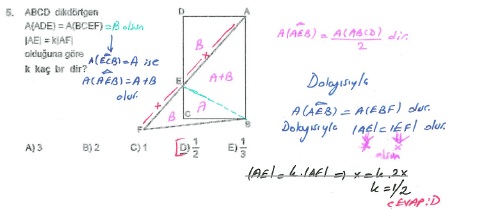 5. ABCD dikdörtgen
A(ADE) = A(BCEF) = B olsun
|AE| = k|AF|
olduğuna göre
k kaç br dir?
A(ECB) = A ise
A(AEB) = A+B
olur.
D A
B x
A+B
E
x B A
C B
F
A) 3 B) 2 C) 1 D) 1/2 E) 1/3
A(AEB) = A(ABCD)/2 dir.
Dolayısıyla
A(AEB) = A(EBF) olur.
Dolayısıyla |AE| = |EF| olur.
x x
olsun
|AE| = k.|AF| ⇒ x = k.2x
k = 1/2
CEVAP: D